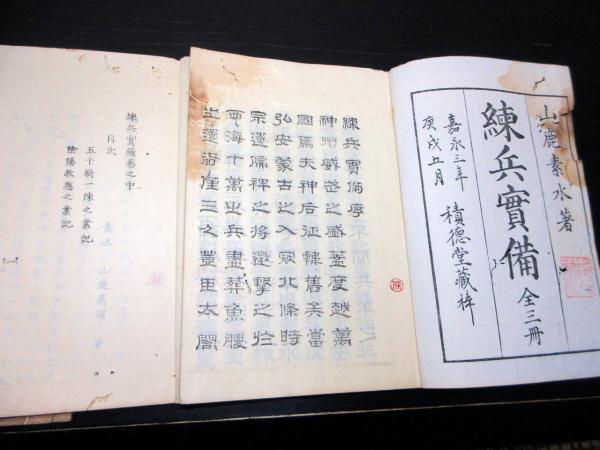 山鹿素水著
練兵實備 全三冊
嘉永三年 積德堂藏梓
庚戌五月
練兵實備序
神州威武之盛蓋度越萬
國焉夫神后征韓舊矣當
弘安蒙古之入寇北條時
宗遣偏裨之將邀擊之於
西海十萬之兵盡葬魚腹
生還者僅三人豐臣太閤
練兵實備卷之中
目次
五十騎一陣之業記
陰陽救應之業記